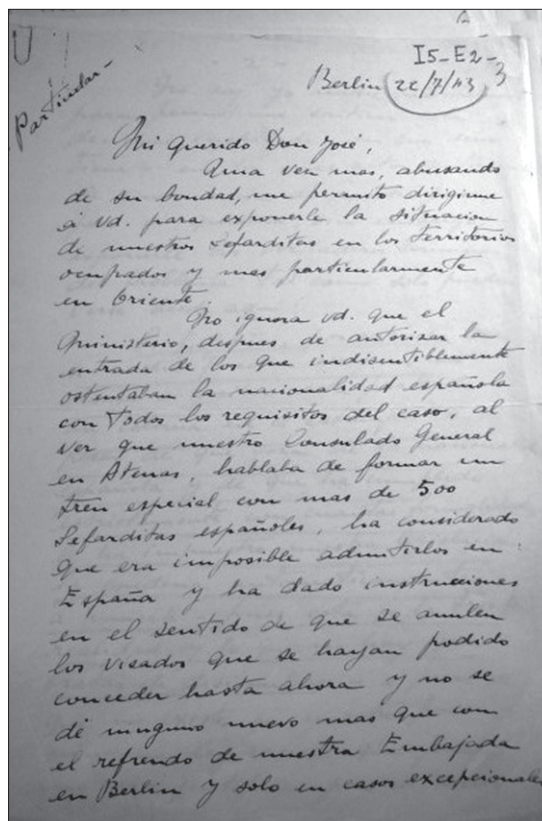 I5-E2-3
Particular-
Berlin 22/7/43
Mi querido Don José,
Una vez mas, abusando
de su bondad, me permito dirigirme
á vd. para exponerle la situacion
de nuestros Sefarditas en los territorios
ocupados y mas particularmente
en Oriente.
No ignora vd. que el
Ministerio, despues de autorizar la
entrada de los que indiscutiblemente
ostentaban la nacionalidad española
con todos los requisitos del caso, al
ver que nuestro Consulado General
en Atenas, hablaba de formar un
tren especial con mas de 500
Sefarditas españoles, ha considerado
que era imposible admitirlos en
España y ha dado instrucciones
en el sentido de que se anulen
los visados que se hayan podido
conceder hasta ahora y no se
dé ninguno nuevo mas que con
el refrendo de nuestra Embajada
en Berlin y solo en casos excepcionales